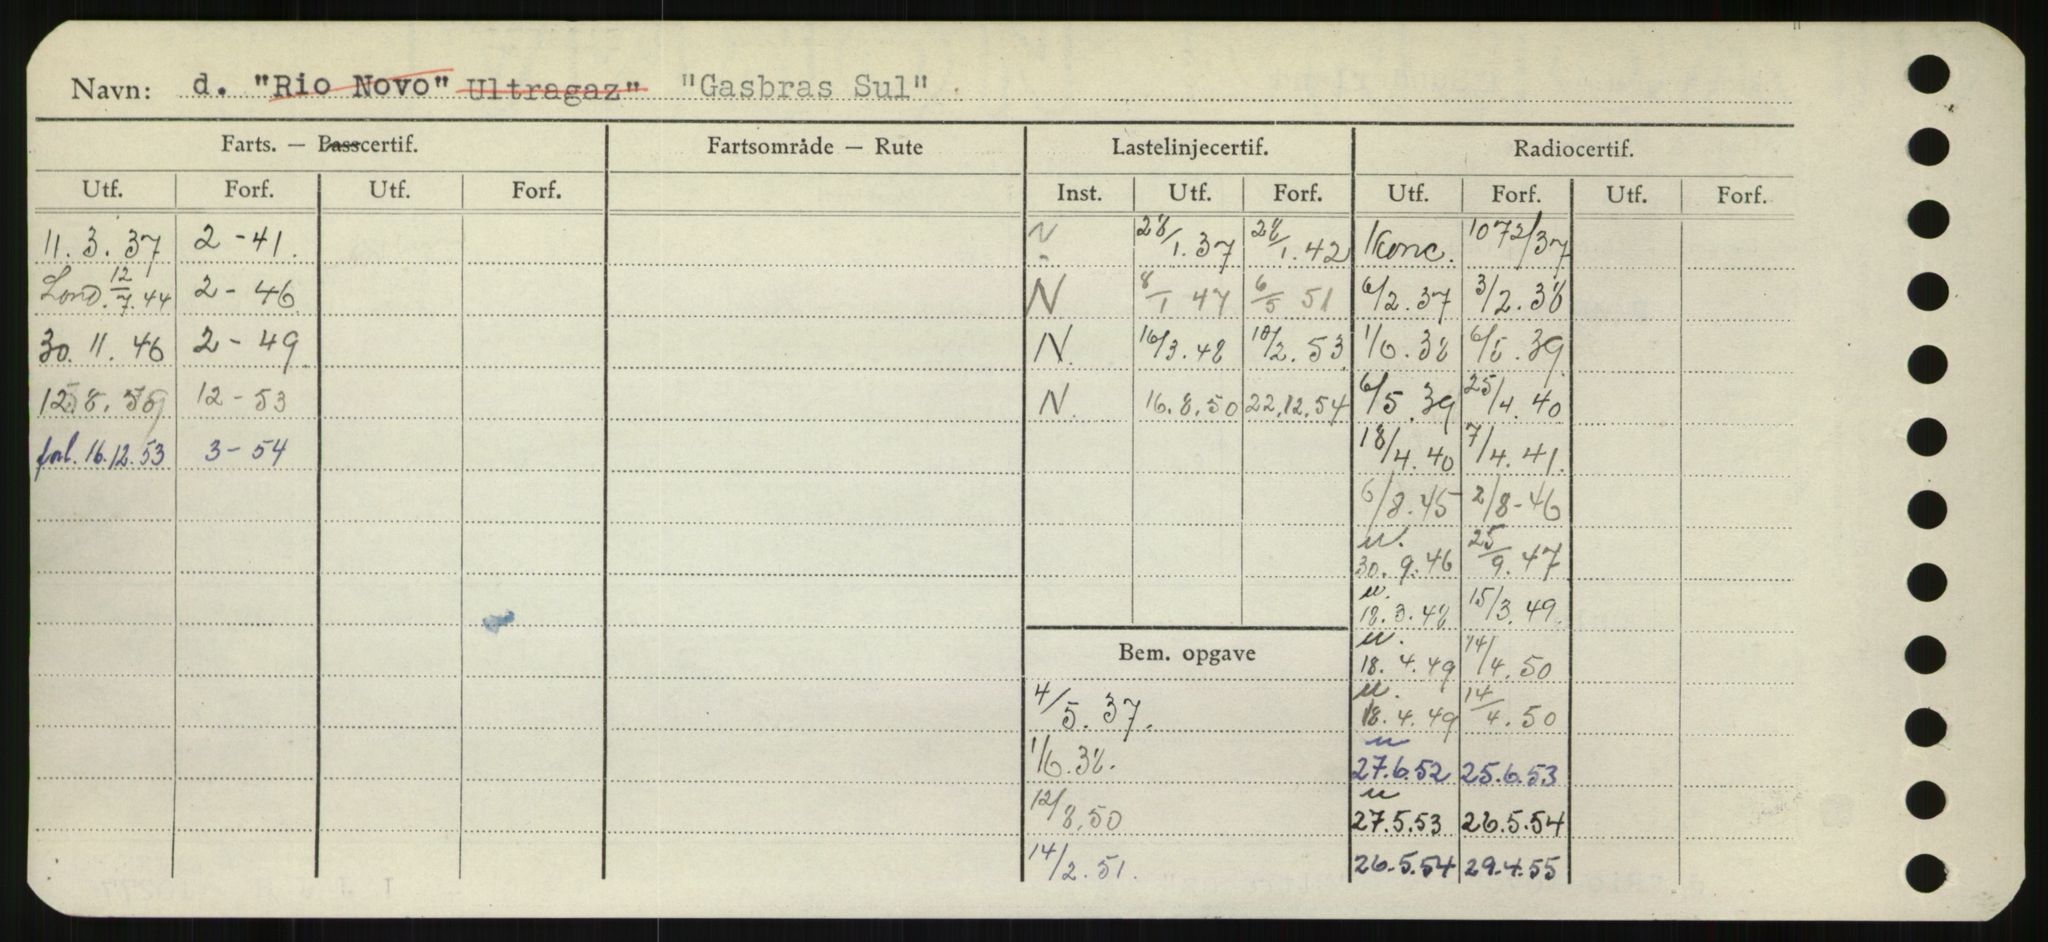 Navn: d. "Rio Novo" Ultragaz" "Gasbras Sul"
Farts. — Passcertif. Fartsområde — Rute Lastelinjecertif. Radiocertif.
Utf. Forf. Utf. Forf. Inst. Utf. Forf. Utf. Forf. Utf. Forf.
11. 3. 37 2-41. N 28/1. 37 28/1. 42 Konc. 1072/37
Lond. 12/7. 44 2-46 N 8/1 47 6/5 51 6/2. 37 3/2. 38
30. 11. 46 2-49 N. 16/3. 48 10/2. 53 1/6. 38 6/5. 39
8. 12-53 N. 16. 8. 50 22. 12. 54 6/5. 39 25/4. 40
forl. 16. 12. 53 3-54 18/4. 40 7/4. 41.
6/8. 45 2/8-46
u. 30. 9. 46 25/9. 47
u. 18. 3. 48 15/3. 49.
Bem. opgave u. 18. 4. 49 14/4. 50
4/5. 37. u. 18. 4. 49 14/4. 50
1/6. 38. u 27. 6. 52 25. 6. 53
12/8. 50 u 27. 5. 53 26. 5. 54
14/2. 51. 26. 5. 54 29. 4. 55